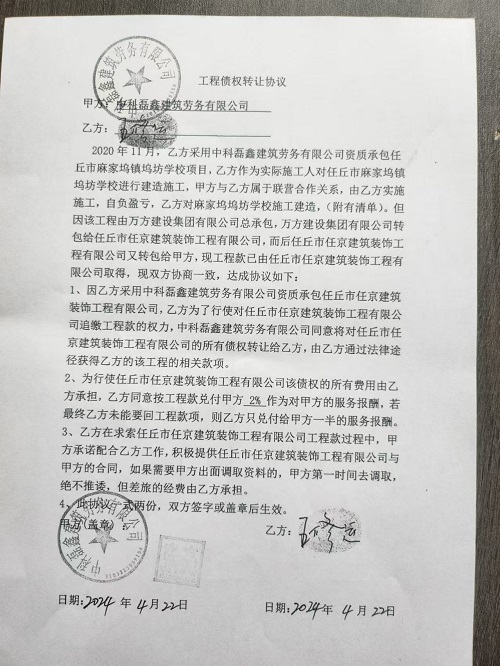 工程债权转让协议
中科磊鑫建筑劳务有限公司
甲方：中科磊鑫建筑劳务有限公司
乙方：
2020年11月，乙方采用中科磊鑫建筑劳务有限公司资质承包任
丘市麻家坞镇坞坊学校项目，乙方作为实际施工人对任丘市麻家坞镇
坞坊学校进行建造施工，甲方与乙方属于联营合作关系，由乙方实施
施工，自负盈亏，乙方对麻家坞坞坊学校施工建造，（附有清单）。但
因该工程由万方建设集团有限公司总承包，万方建设集团有限公司转
包给任丘市任京建筑装饰工程有限公司，而后任丘市任京建筑装饰工
程有限公司又转包给甲方，现工程款已由任丘市任京建筑装饰工程有
限公司取得，现双方协商一致，达成协议如下：
1、因乙方采用中科磊鑫建筑劳务有限公司资质承包任丘市任京建筑
装饰工程有限公司，乙方为了行使对任丘市任京建筑装饰工程有限公
司追缴工程款的权力，中科磊鑫建筑劳务有限公司同意将对任丘市任
京建筑装饰工程有限公司的所有债权转让给乙方，由乙方通过法律途
径获得乙方的该工程的相关款项。
2、为行使任丘市任京建筑装饰工程有限公司该债权的所有费用由乙
方承担，乙方同意按工程款兑付甲方 2% 作为对甲方的服务报酬，若
最终乙方未能要回工程款项，则乙方只兑付给甲方一半的服务报酬。
3、乙方在求索任丘市任京建筑装饰工程有限公司工程款过程中，甲
方承诺配合乙方工作，积极提供任丘市任京建筑装饰工程有限公司与
甲方的合同，如果需要甲方出面调取资料的，甲方第一时间去调取，
绝不推诿，但差旅的经费由乙方承担。
4、此协议一式两份，双方签字或盖章后生效。
甲方（盖章）：
乙方：
中科磊鑫建筑劳务有限公司
日期：2024年4月22日
日期：2024年4月22日